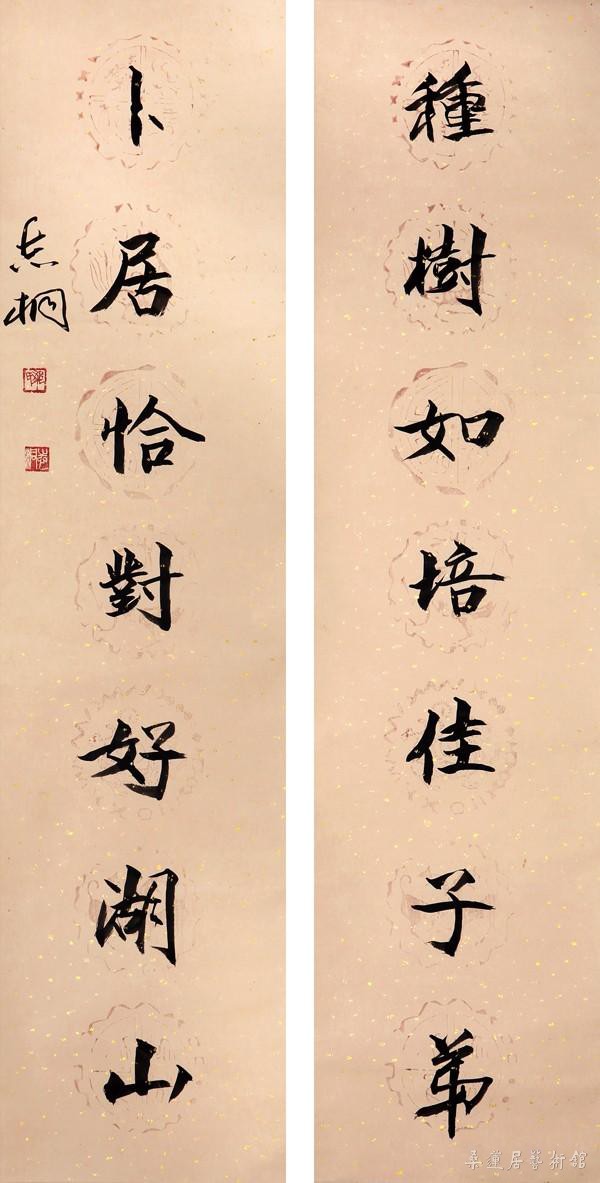 種樹如培佳子弟
卜居恰對好湖山
志桐
桑蓮居藝術館